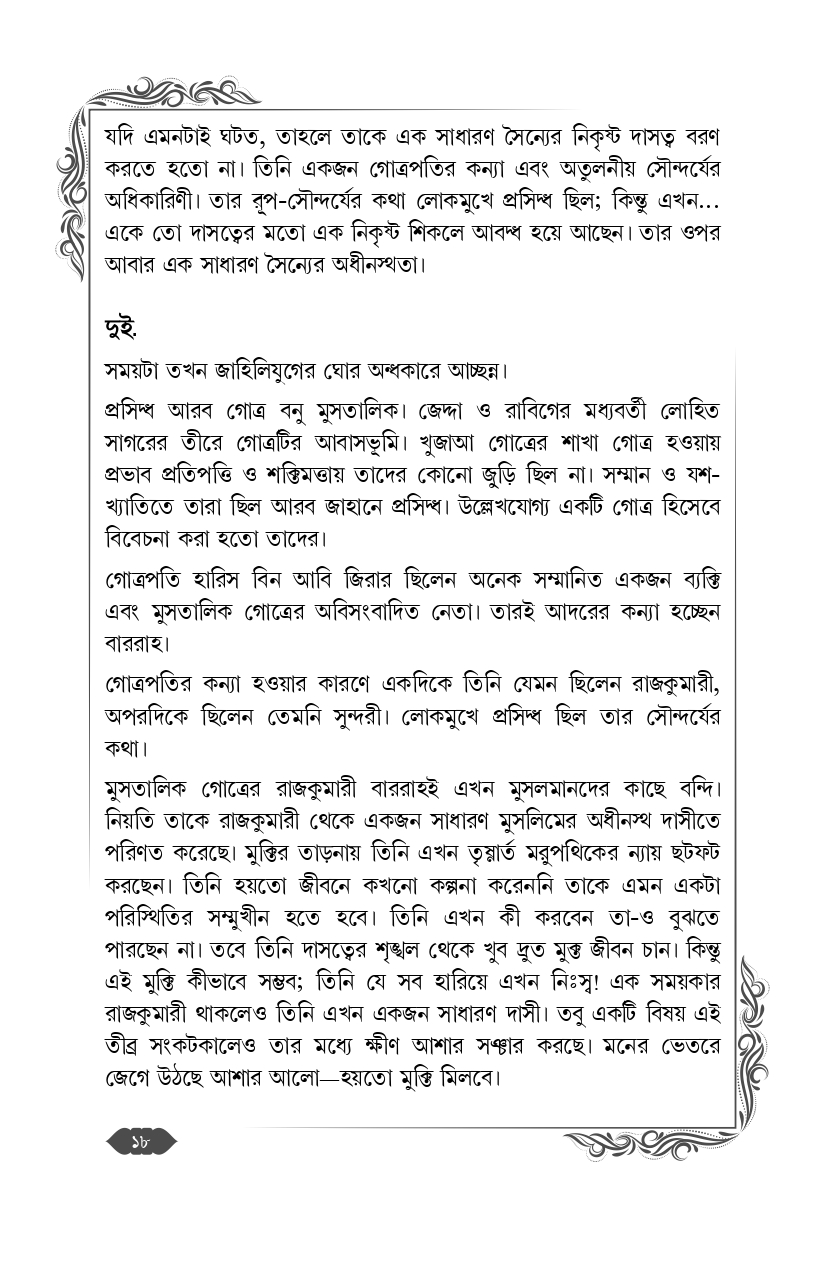 যদি এমনটাই ঘটত, তাহলে তাকে এক সাধারণ সৈন্যের নিকৃষ্ট দাসত্ব বরণ
করতে হতো না। তিনি একজন গোত্রপতির কন্যা এবং অতুলনীয় সৌন্দর্যের
অধিকারিণী। তার রূপ-সৌন্দর্যের কথা লোকমুখে প্রসিদ্ধ ছিল; কিন্তু এখন...
একে তো দাসত্বের মতো এক নিকৃষ্ট শিকলে আবদ্ধ হয়ে আছেন। তার ওপর
আবার এক সাধারণ সৈন্যের অধীনস্থতা।
দুই.
সময়টা তখন জাহিলিযুগের ঘোর অন্ধকারে আচ্ছন্ন।
প্রসিদ্ধ আরব গোত্র বনু মুসতালিক। জেদ্দা ও রাবিগের মধ্যবর্তী লোহিত
সাগরের তীরে গোত্রটির আবাসভূমি। খুজাআ গোত্রের শাখা গোত্র হওয়ায়
প্রভাব প্রতিপত্তি ও শক্তিমত্তায় তাদের কোনো জুড়ি ছিল না। সম্মান ও যশ-
খ্যাতিতে তারা ছিল আরব জাহানে প্রসিদ্ধ। উল্লেখযোগ্য একটি গোত্র হিসেবে
বিবেচনা করা হতো তাদের।
গোত্রপতি হারিস বিন আবি জিরার ছিলেন অনেক সম্মানিত একজন ব্যক্তি
এবং মুসতালিক গোত্রের অবিসংবাদিত নেতা। তারই আদরের কন্যা হচ্ছেন
বাররাহ।
গোত্রপতির কন্যা হওয়ার কারণে একদিকে তিনি যেমন ছিলেন রাজকুমারী,
অপরদিকে ছিলেন তেমনি সুন্দরী। লোকমুখে প্রসিদ্ধ ছিল তার সৌন্দর্যের
কথা।
মুসতালিক গোত্রের রাজকুমারী বাররাহই এখন মুসলমানদের কাছে বন্দি।
নিয়তি তাকে রাজকুমারী থেকে একজন সাধারণ মুসলিমের অধীনস্থ দাসীতে
পরিণত করেছে। মুক্তির তাড়নায় তিনি এখন তৃষ্ণার্ত মরুপথিকের ন্যায় ছটফট
করছেন। তিনি হয়তো জীবনে কখনো কল্পনা করেননি তাকে এমন একটা
পরিস্থিতির সম্মুখীন হতে হবে। তিনি এখন কী করবেন তা-ও বুঝতে
পারছেন না। তবে তিনি দাসত্বের শৃঙ্খল থেকে খুব দ্রুত মুক্ত জীবন চান। কিন্তু
এই মুক্তি কীভাবে সম্ভব; তিনি যে সব হারিয়ে এখন নিঃস্ব! এক সময়কার
রাজকুমারী থাকলেও তিনি এখন একজন সাধারণ দাসী। তবু একটি বিষয় এই
তীব্র সংকটকালেও তার মধ্যে ক্ষীণ আশার সঞ্চার করছে। মনের ভেতরে
জেগে উঠছে আশার আলো—হয়তো মুক্তি মিলবে।
১৮